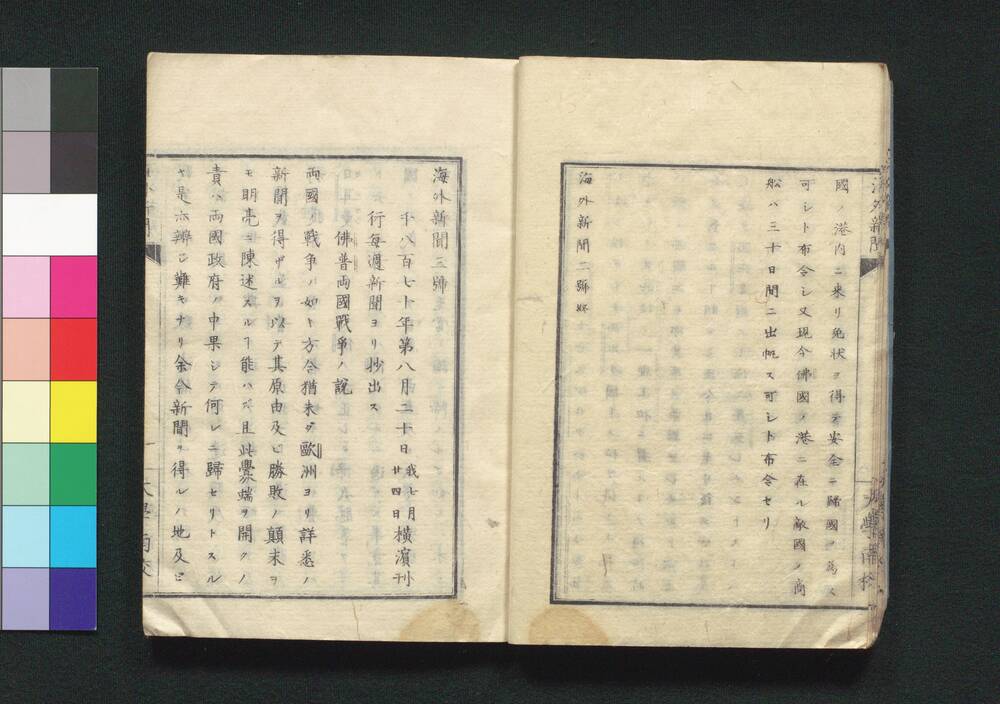 國ノ港内ニ来リ免状ヲ得テ安全ニ歸國
可シト布令シ又現今佛國ノ港ニ在ル敵國ノ商
船ハ三十日間ニ出帆ス可シト布令セリ
海外新聞二號終
海外新聞
大學南校
海外新聞三號
千八百七十年第八月二十日我七月廿四日橫濱刊
行每週新聞ヨリ抄出ス
佛普両國戰爭ノ說
両國ノ戰爭ハ如何方今猶未ダ歐洲ヨリ詳悉ノ
新聞ヲ得ザルヲ以テ其原由及ヒ勝敗ノ顛末ヲ
モ明亮ニ陳述スルヿ能ハズ且此釁端ヲ開クノ
責ハ両國政府ノ中果シテ何レニ歸セリトスル
ヤ是亦辨ジ難キナリ余今新聞ヲ得ルノ地及ビ
大學南校